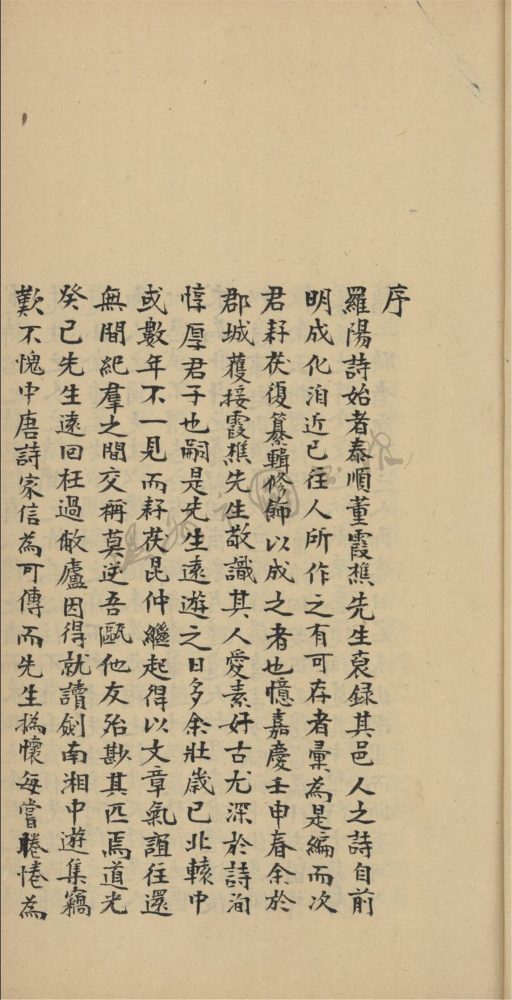 序
羅陽詩始者泰順董霞樵先生裒録其邑人之詩自前
明成化洎近已往人所作之有可存者彙為是編而次
君耔茯復纂輯修飾以成之者也憶嘉慶壬申春余於
郡城蒦接霞樵先生敬識其人愛素好古尤深於詩洵
惇厚君子也嗣是先生遠遊之日多余壯歲已北轅中
或數年不一見而耔茯昆仲繼起得以文章氣誼往還
無間紀羣之間交稱莫逆吾甌他友殆尠其匹焉道光
癸巳先生遠回枉過敝廬因得就讀劍南湘中遊集竊
歎不愧中唐詩家信為可傳而先生撝懷每嘗惓惓為